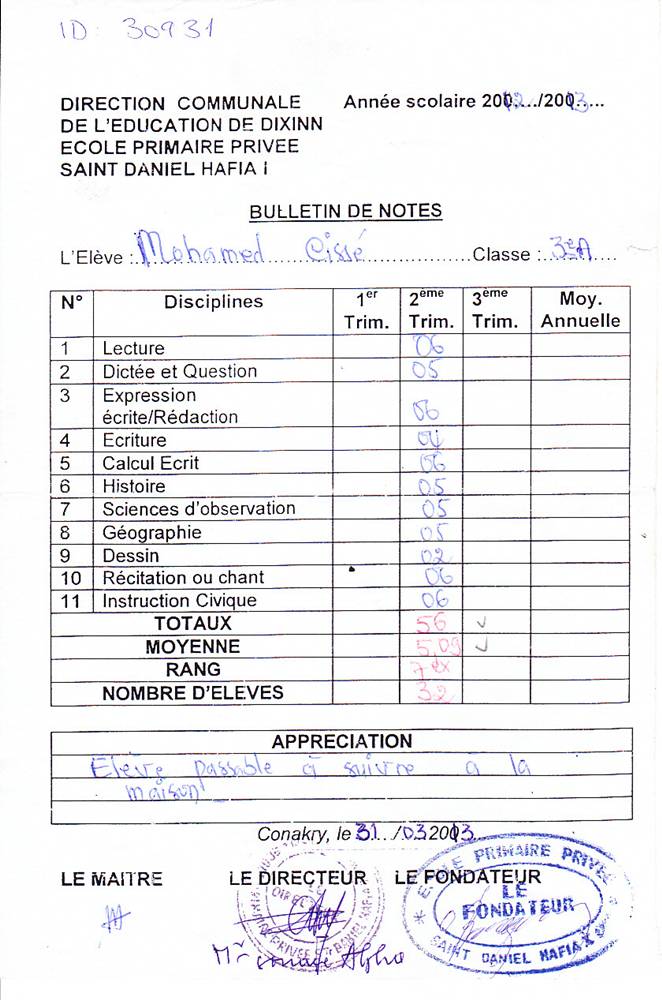 ID: 30931
DIRECTION COMMUNALE Année scolaire 2012/2013
DE L'EDUCATION DE DIXINN
ECOLE PRIMAIRE PRIVEE
SAINT DANIEL HAFIA I
BULLETIN DE NOTES
L'Elève : Mohamed Cissé Classe : 3eA
N° Disciplines 1er Trim. 2ème Trim. 3ème Trim. Moy. Annuelle
1 Lecture 06
2 Dictée et Question 05
3 Expression
écrite/Rédaction 06
4 Ecriture 04
5 Calcul Ecrit 06
6 Histoire 05
7 Sciences d'observation 05
8 Géographie 05
9 Dessin 02
10 Récitation ou chant 06
11 Instruction Civique 06
TOTAUX 56
MOYENNE 5,09
RANG 7ex
NOMBRE D'ELEVES 32
APPRECIATION
Elève passable à suivre à la
maison
Conakry, le 31/03 2013
LE MAITRE LE DIRECTEUR LE FONDATEUR
ECOLE PRIMAIRE PRIVEE
LE
FONDATEUR
SAINT DANIEL HAFIA
Alpha